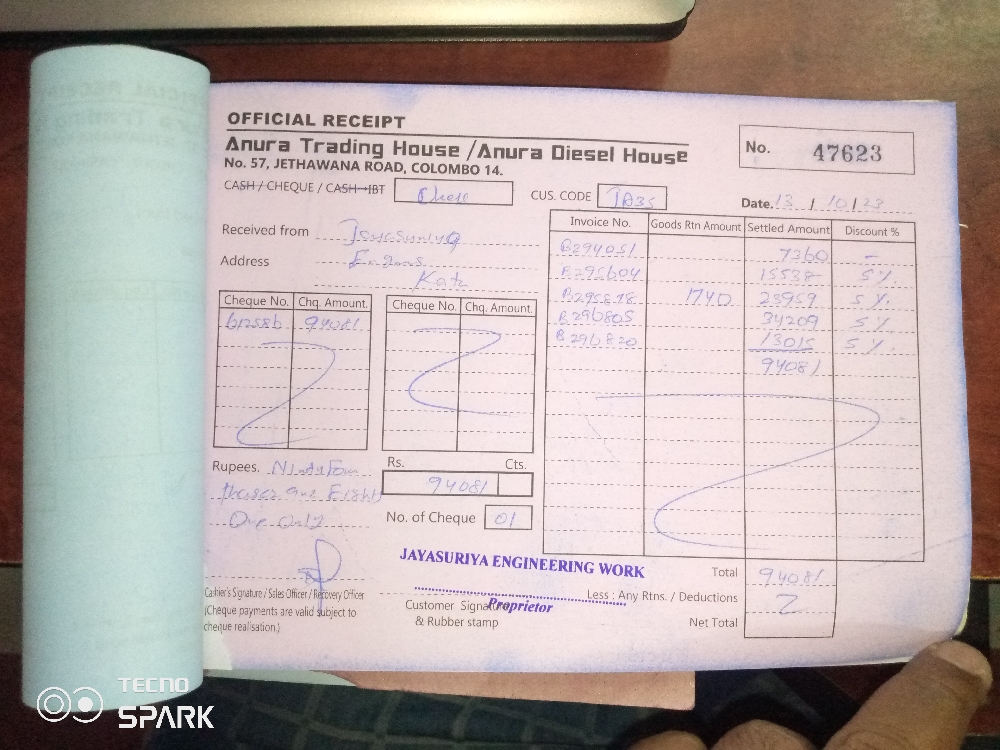 OFFICIAL RECEIPT
Anura Trading House /Anura Diesel House
No. 57, JETHAWANA ROAD, COLOMBO 14.
No. 47623
CASH / CHEQUE / CASH IBT
CUS. CODE JA35
Date. 13 / 10 / 23
Received from Jayasuriya
Address
Invoice No. Goods Rtn Amount Settled Amount Discount %
B294051 7360 –
B295604 15538 5 %
B295878 1740 23959 5 %
B296805 34209 5 %
B296820 13015 5 %
94081
Cheque No. Chq. Amount. Cheque No. Chq. Amount.
612556 94081
Rupees.
One Only
Rs. Cts.
94081
No. of Cheque 01
JAYASURIYA ENGINEERING WORK
Proprietor
Cashier's Signature / Sales Officer / Recovery Officer
(Cheque payments are valid subject to
cheque realisation.)
Customer Signature
& Rubber stamp
Total 94081
Less : Any Rtns. / Deductions
Net Total
TECNO
SPARK